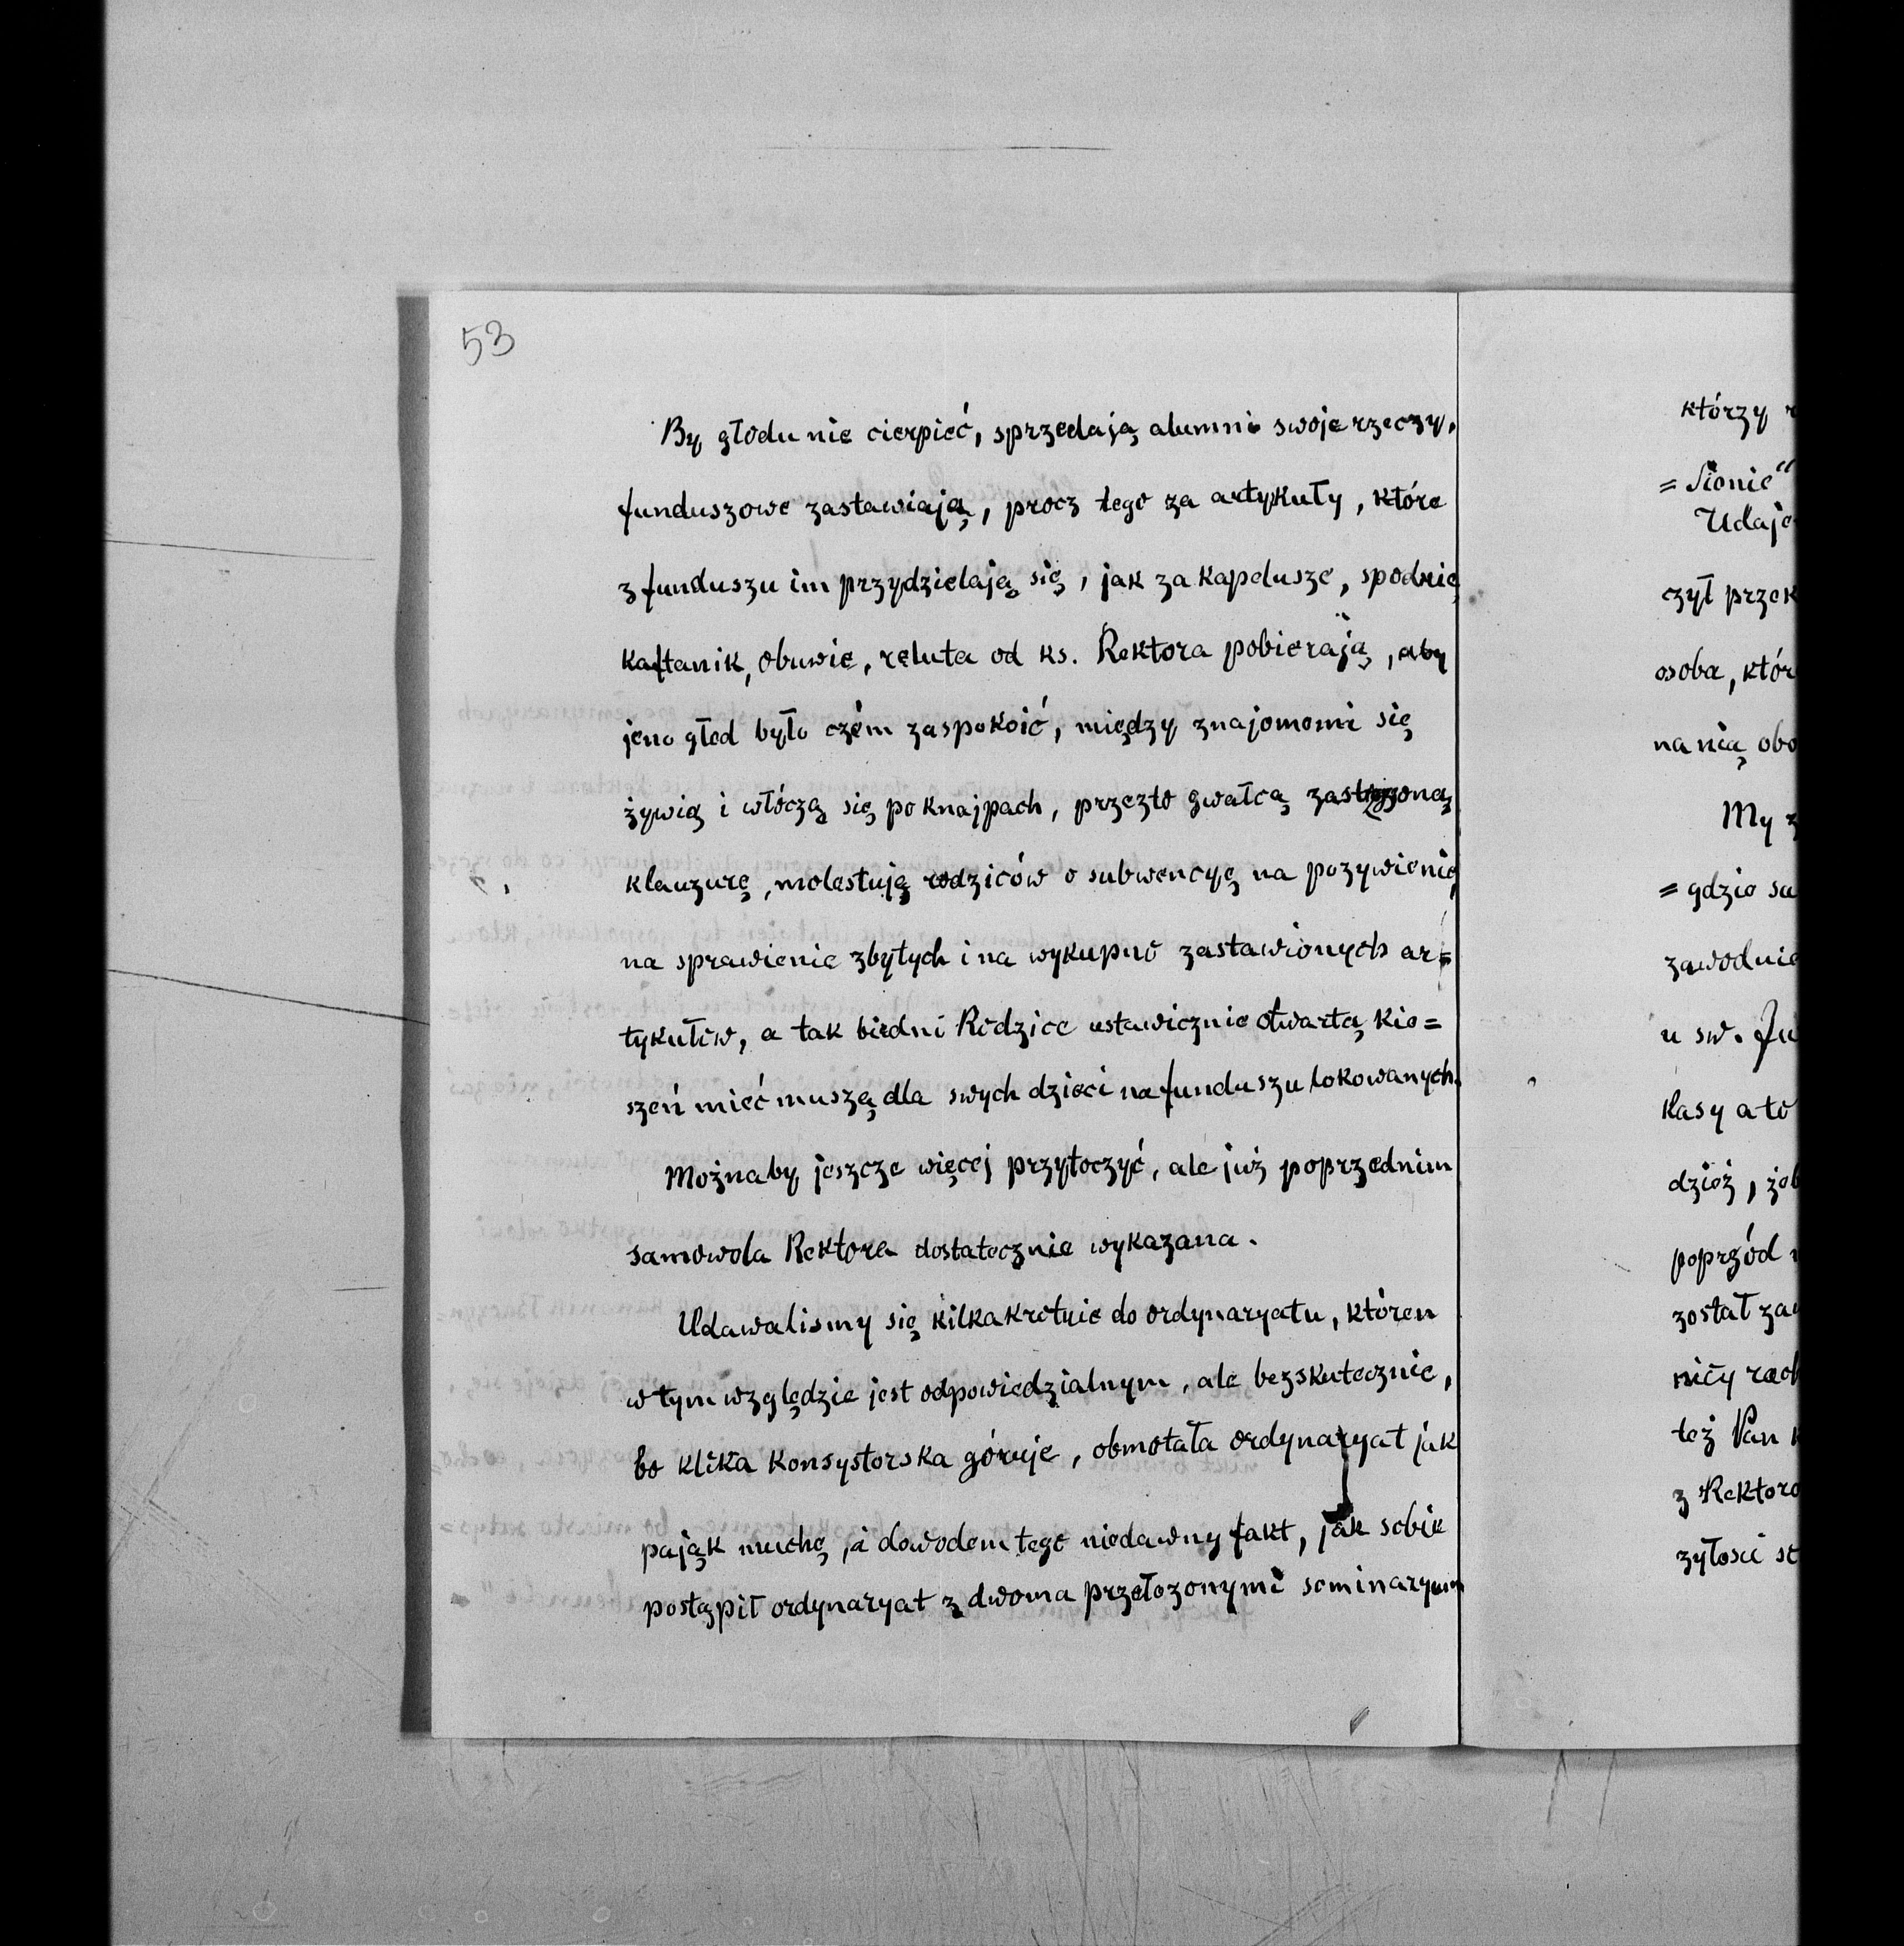 53
By głodu nie cierpieć, sprzedają alumni swoje rzeczy,
funduszowe zastawiają, procz tego za artykuły, które
z funduszu im przydzielają się, jak za kapelusze, spodnie
kaftanik, obuwie, reluta od ks. Rektora pobierają, aby
jeno głod było czém zaspokoić, między znajomemi się
żywią i włóczą się po knajpach, przezto gwałcą zastrzżoną
klauzurę, molestują rodziców o subwencyę na pozywienie
na sprawienie zbytych i na wykupno zastawionych ar=
tykułów, a tak biedni Rodzice ustawicznie otwartą kie=
szeń mieć muszą dla swych dzieci na funduszu lokowanych.
Możnaby jeszcze więcej przytoczyć, ale już poprzednim
samowola Rektora dostatecznie wykazana.
Udawalismy się kilkakrotnie do ordynaryatu, któren
w tym względzie jest odpowiedzialnym, ale bezskutecznie,
bo klika konsystorska góruje, obmotała ordynaryat jak
pająk muchę, a dowodem tego niedawny fakt, jak sobie
postąpił ordynaryat z dwoma przełozonymi seminaryum
którzy
= Sionie“
Udaje
czył przek
osoba, któr
na nią obo
My z
= gdzie su
zawodnie
u sw. Ju
kasy a to
dzież, żeb
poprzód
został za
niczy rach
też Pan
z Rektoro
zyłosci st